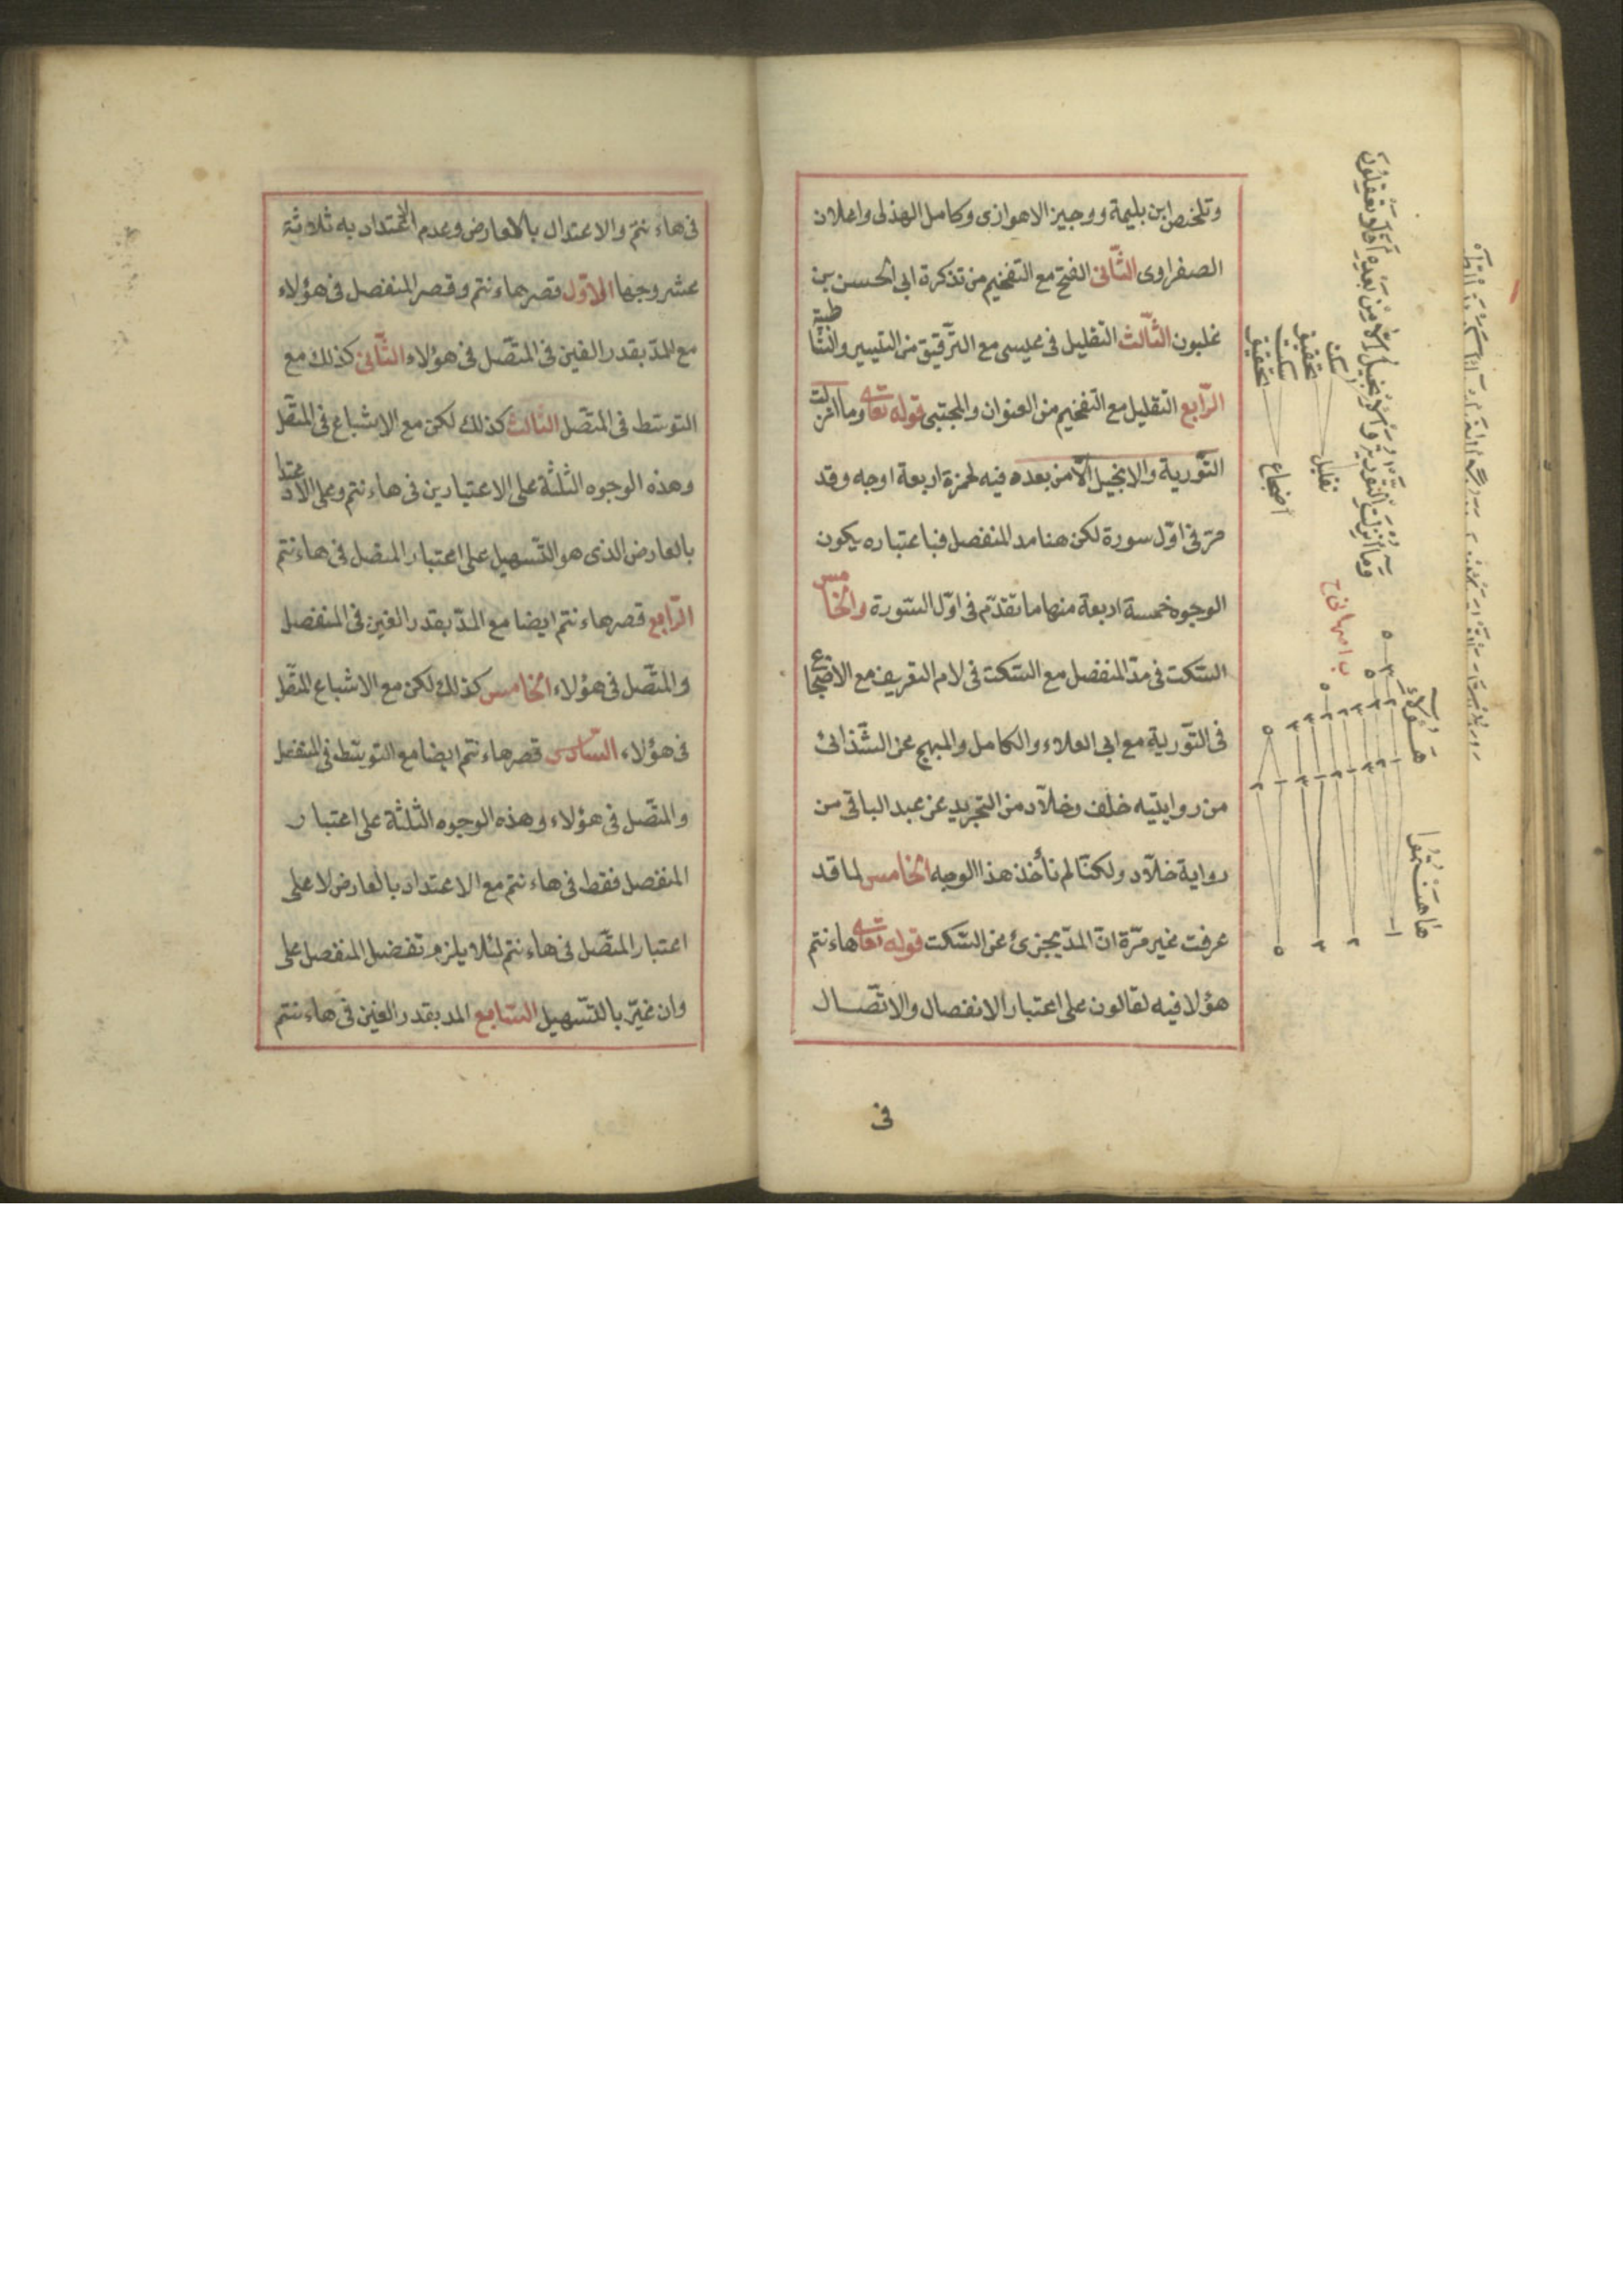 وتلخيص ابن بليمة ووجيز الاهوازى وكامل الهذلى واعلان
الصفراوى الثّانى الفتح مع التفخيم من تذكرة ابى الحسن بن
غلبون الثّالث التقليل فى عيسى مع الترقيق من التيسير والشّاطبية
الرّابع التقليل مع التفخيم من العنوان والمجتبى قوله تعالى وما انزلت
التّورية والانجيل الّا من بعده فيه لحمزة اربعة اوجه وقد
مرّ فى اوّل سورة لكن هنا مد المنفصل فباعتباره يكون
الوجوه خمسة اربعة منها ما تقدّم فى اوّل السّورة والخامس
السّكت فى مدّ المنفصل مع السّكت فى لام التعريف مع الاضجاع
فى التّورية مع ابى العلاء والكامل والمبهج عن الشّذائى
من روايتيه خلف وخلّاد من التجريد عن عبد الباقى من
رواية خلّاد ولكنّا لم نأخذ هذا الوجه الخامس لما قد
عرفت غير مرّة انّ المدّ يجزئ عن السّكت قوله تعالى هاءنتم
هؤلا فيه لقالون على اعتبار الانفصال والاتّصال
فى
وما انزلت التورية والانجيل الا من بعده افلا تعقلون
تحقيق
سكت
تحقيق
سكت
تقليل
اضجاع
هؤلاء
فى هاءنتم والاعتدال بالعارض وعدم الاعتداد به ثلاثة
عشر وجها الاوّل قصر هاءنتم وقصر المنفصل فى هؤلاء
مع المدّ بقدر الفين فى المتّصل فى هؤلاء الثّانى كذلك مع
التوسّط فى المتّصل الثالث كذلك لكن مع الاشباع فى المتّصل
وهذه الوجوه الثلثة على الاعتبارين فى هاءنتم وعلى الاعتداد
بالعارض الذى هو التّسهيل على اعتبار المتصل فى هاءنتم
الرّابع قصر هاءنتم ايضا مع المدّ بقدر الفين فى المنفصل
والمتّصل فى هؤلاء الخامس كذلك لكن مع الاشباع المتّصل
فى هؤلاء السّادس قصر هاءنتم ايضا مع التوسّط فى المنفصل
والمتّصل فى هؤلاء وهذه الوجوه الثّلثة على اعتبار
المنفصل فقط فى هاءنتم مع الاعتداد بالعارض لا على
اعتبار المتّصل فى هاءنتم لئلا يلزم تفضيل المنفصل على
وان غيّر بالتّسهيل السّابع المد بقدر الفين فى هاءنتم